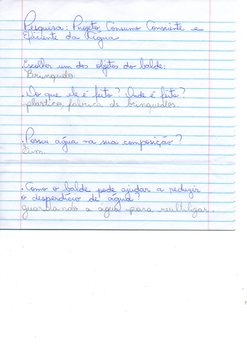 Pesquisa: Projeto Consumo Consciente e
Eficiente da Água
Escolher um dos objetos do balde:
Brinquedo.
. Do que ele é feito? Onde é feito?
plástico, fábrica de brinquedos.
. Possui água na sua composição?
Sim.
. Como o balde pode ajudar a reduzir
o desperdício de água?
guardando a água para reutilizar.